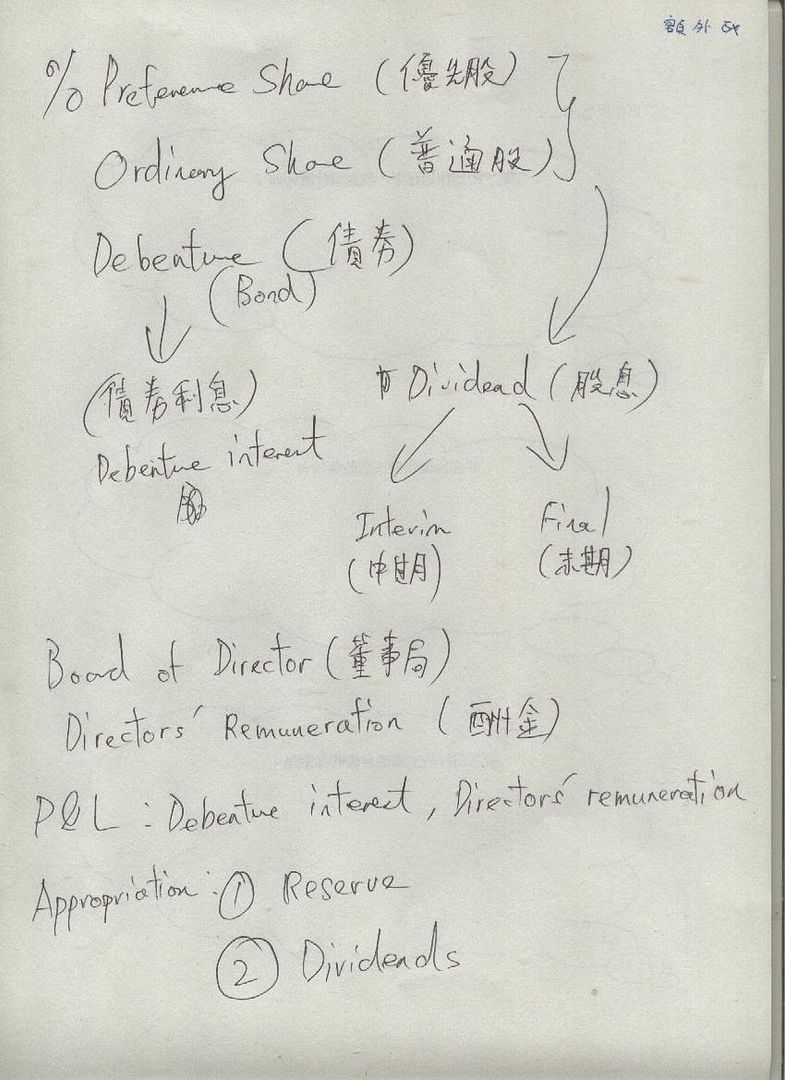 額外
% Preference Share (優先股)
Ordinary Share (普通股)
Debenture (債券)
(Bond)
(債券利息)
Dividend (股息)
Debenture interest
Interim
Final
(中期)
(末期)
Board of Director (董事局)
Directors' Remuneration (酬金)
P&L : Debenture interest, Directors' remuneration
Appropriation : ① Reserve
② Dividends